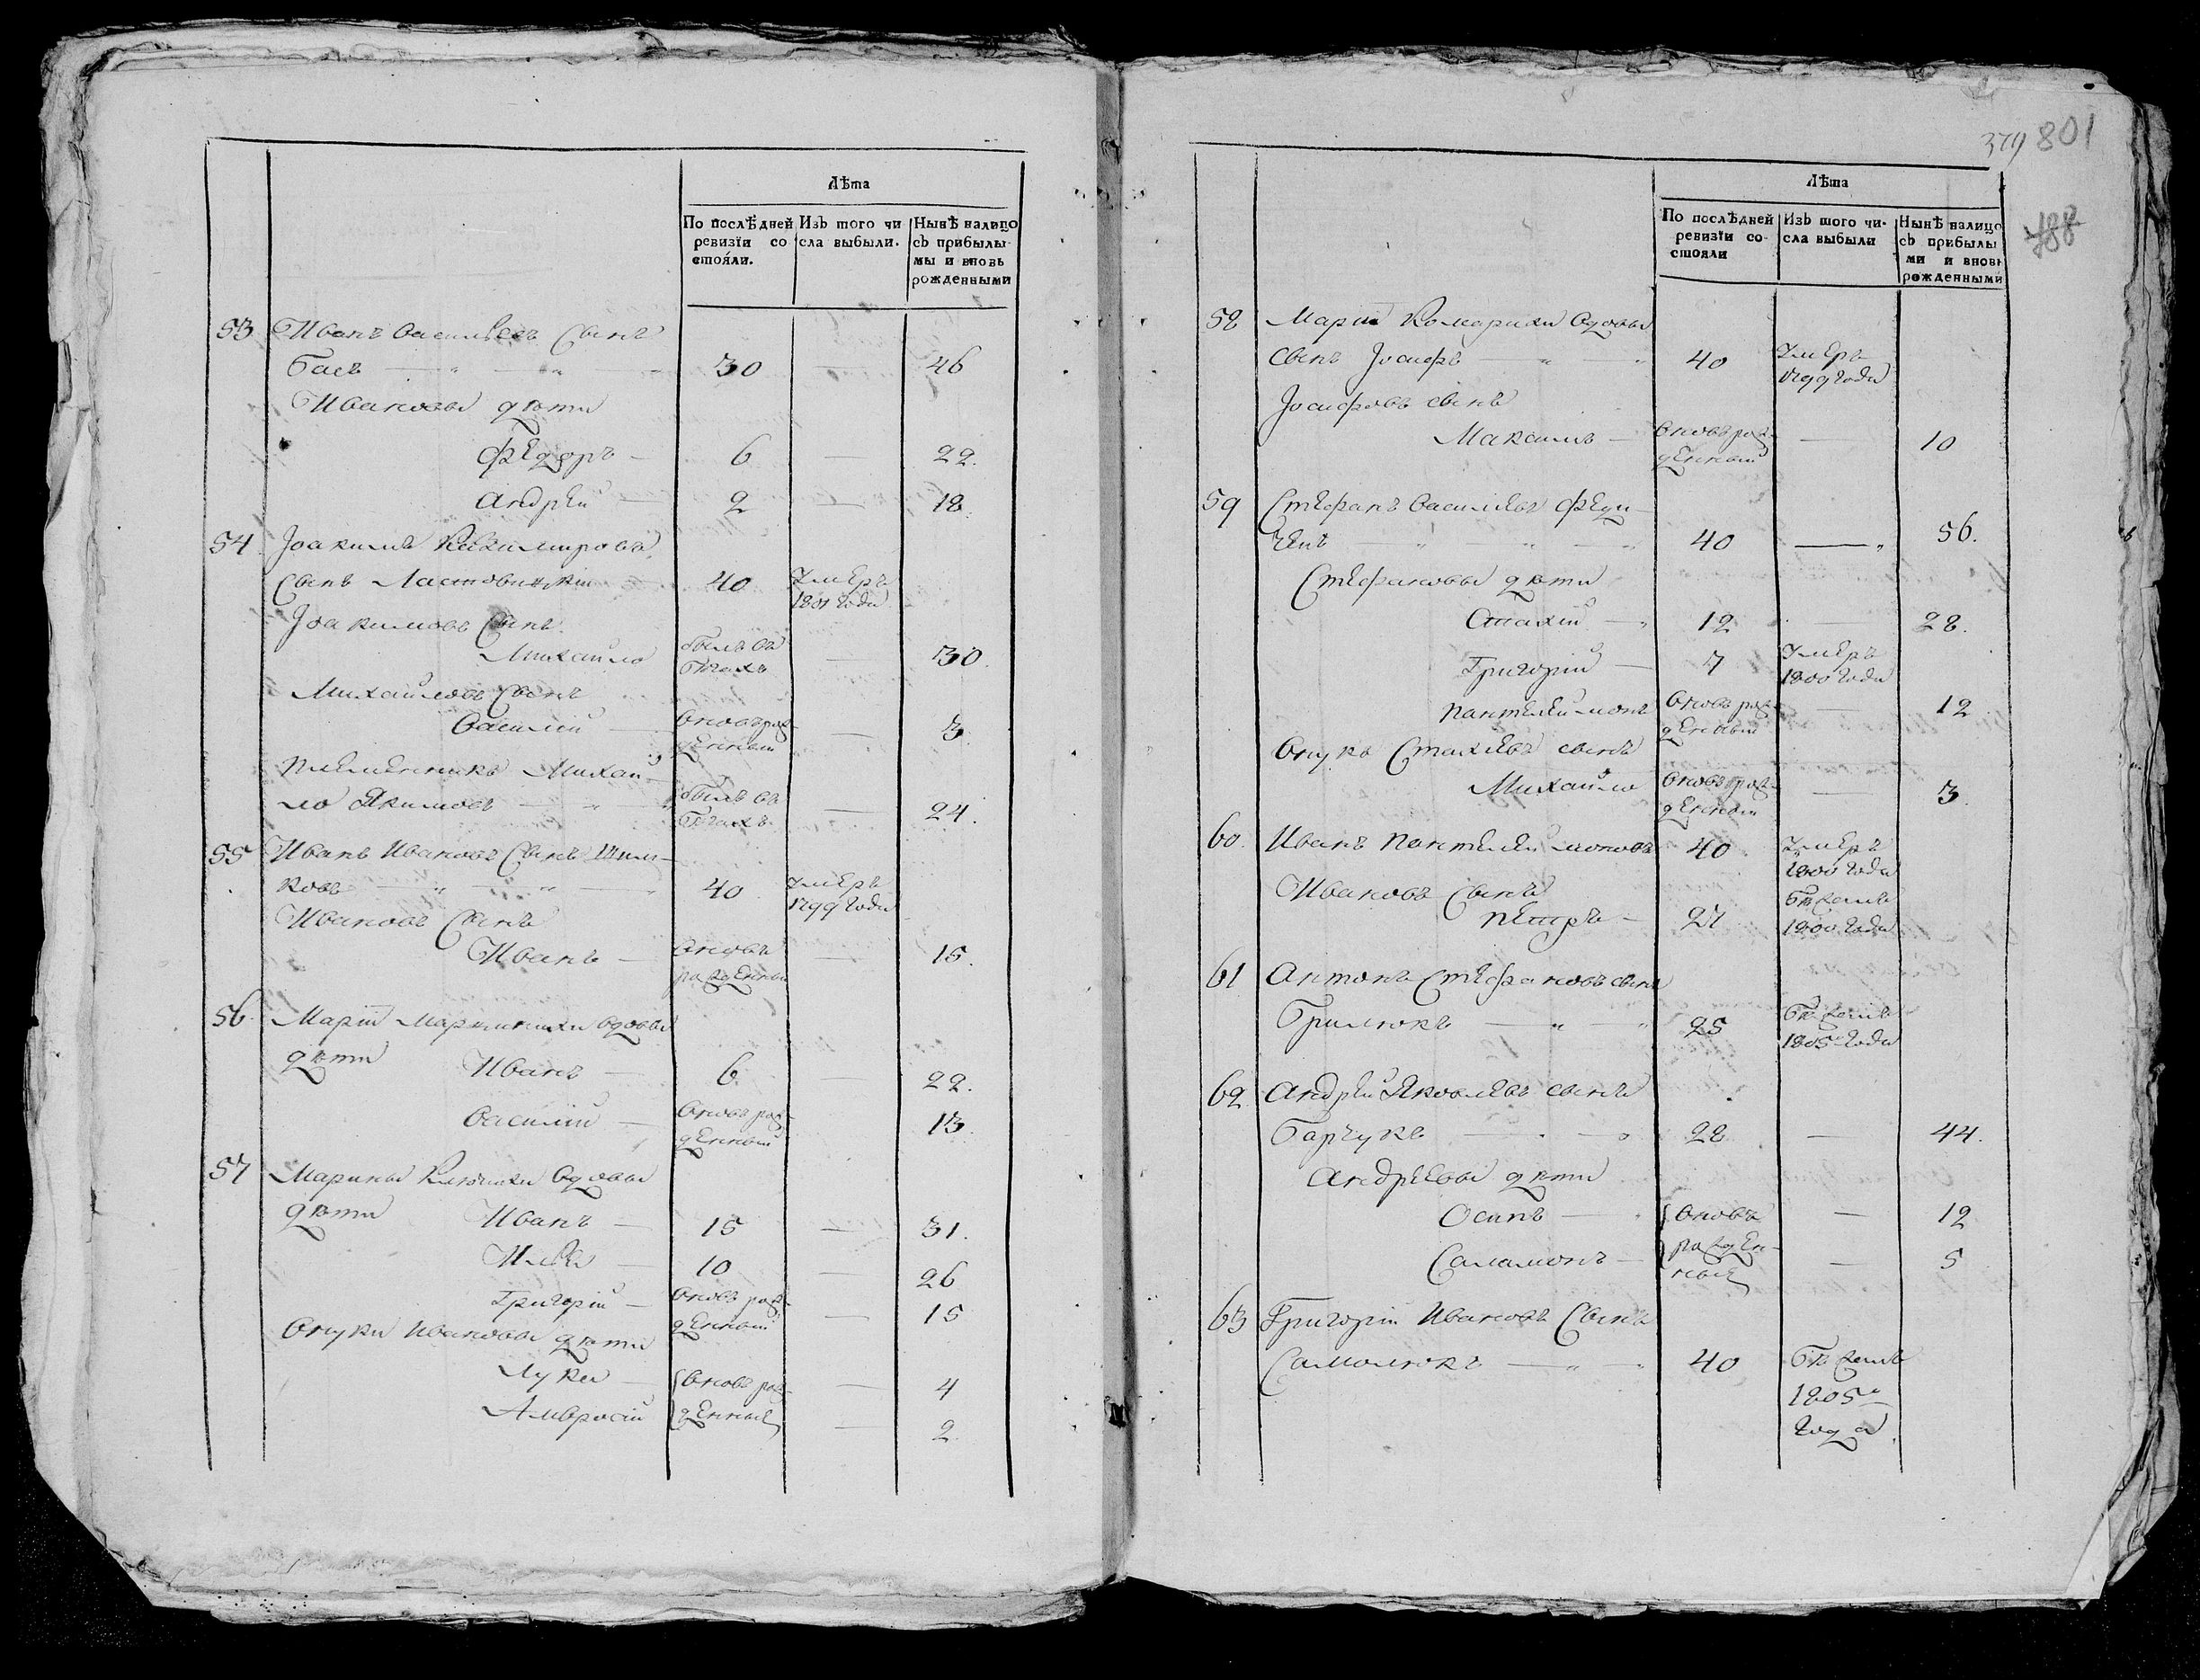 Лѣта
По послѣдней ревизіи со стояли.
Изъ того чи сла выбыли.
Нынѣ налицо съ прибылы мы и вновь рожденными
53 Иванъ Васильевъ Сынъ
Баевъ 30 — 46
Ивановы дѣти
Федоръ — 6 — 22.
Андрей — 2 — 18.
54 Іоакимъ Казимировъ
Сынъ Ластовицкій 40 Умеръ
1801 года
Іоакимовъ Сынъ
Михайло былъ въ
бѣгахъ — 30.
Михайловъ Сынъ
Василій — вновьрож-
денный — 3.
племенникъ Михай-
ло Якимовъ былъ въ
бѣгахъ — 24.
55 Иванъ Ивановъ Сынъ
ковъ 40 Умеръ
1799 года
Ивановъ Сынъ
Иванъ — вновь
рожденный — 15.
56 Маріи вдовы
дѣти Иванъ — 6 — 22.
Василій — вновьрож-
денный — 13.
57 Марины вдовы
дѣти Иванъ — 15 — 31.
Илья — 10 — 26
Григорій — вновьрож-
денный — 15
Внуки Ивановы дѣти
Лука — вновьрож- — 4
Амвросій денные — 2.
379 801
788
Лѣта
По послѣдней ревизіи со- стояли
Изъ того чи- сла выбыли
Нынѣ налицо съ прибылы ми и вновь рожденными
58 Маріи Комарихи вдовы
сынъ Іосифъ 40 Умеръ
1799 года
Іосифовъ сынъ
Максимъ — вновьрож-
денный — 10
59 Стефанъ Васильевъ Феди-
40 — 56.
Стефановы дѣти
Стахій — 12 — 28.
Григорій — 7 Умеръ
1800 года
Пантелеймонъ вновьрож-
денный — 12
Внукъ Стахіевъ сынъ
Михайло вновьрож-
денный — 3.
60. Иванъ Пантелеймоновъ 40 Умеръ
1800 года
Ивановъ Сынъ
Петръ — 27 Бѣжалъ
1800 года
61 Антонъ Стефановъ сынъ
Брилюкъ 25 Бѣжалъ
1805 года
62 Андрей Яковлевъ сынъ
Барчукъ 28 — 44.
Андреевы дѣти
Осипъ — вновь — 12
Саламонъ — рожден-
ные — 5
63 Григорій Ивановъ Сынъ
Самолюкъ 40 Бѣжалъ
1805го
года